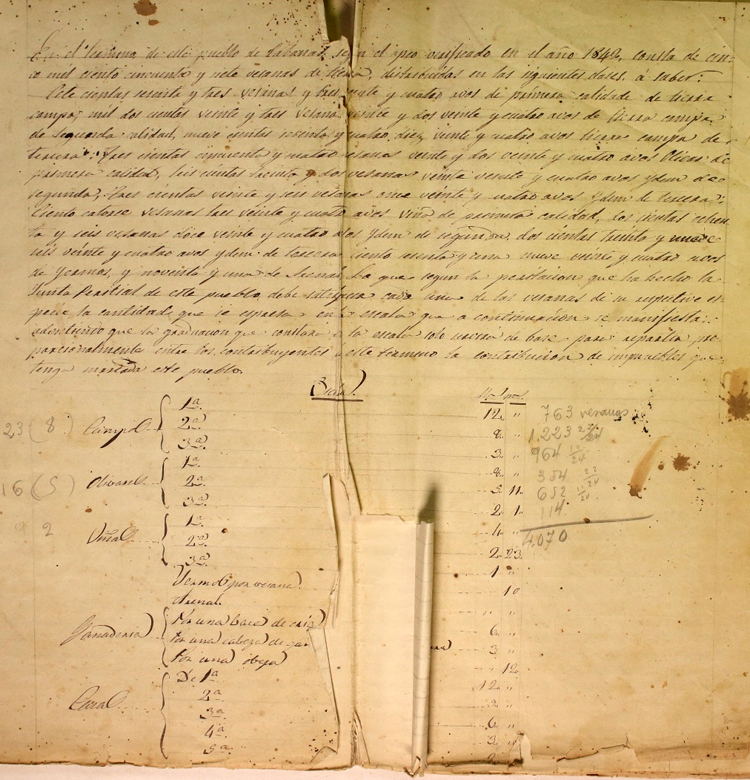 En el termino de este pueblo de Cabanas, segun el apeo verificado en el año 1842, consta de cin-
co mil ciento cincuenta y siete vesanas de tierra, distribuidas en las siguientes clases, á saber:
cientas sesenta y tres vesanas y tres, veinte y cuatro avos de primera calidad de tierra
campa; mil dos cientas veinte y tres vesanas, veinte y dos veinte y cuatro avos de tierra campa
de segunda calidad, nueve cientas sesenta y cuatro, diez, veinte y cuatro avos tierra campa de
tercera: Tres cientas cincuenta y cuatro vesanas veinte y dos veinte y cuatro avos Olivar de
primera calidad, seis cientas cincuenta y dos vesanas veinte veinte y cuatro avos ydem de
segunda; tres cientas veinte y seis vesanas once veinte y cuatro avos ydem de tercera:
Ciento catorce vesanas tres veinte y cuatro avos viña de primera calidad, dos cientas
y seis vesanas doce veinte y cuatro avos ydem de segunda, dos cientas treinta y nueve
seis veinte y cuatro avos ydem de tercera ciento sesenta y una nueve veinte y cuatro avos
de Yermos, y noventa y una de Arenal. La que segun la peritacion que ha hecho la
Junta Pericial de este pueblo, debe satisfacer cada una de las vesanas de su respectiva es-
pecie la cantidad que se espresa en la escala que a continuacion se manifiesta:
advirtiendo que la graduacion que consta en la escala solo servirá de base para repartir pro-
porcionalmente entre los contribuyentes de este termino la contribucion de inmuebles que
tenga marcada este pueblo.
Escala.
23 (8) Campa 1ª 12 " 763 vesanas
2ª 8 " 1.223 22/24
3ª 3 " 964 10/24
16 (5) Olivar 1ª 8 " 354 22/24
2ª 5 11 652 20/24
3ª 2 1 114
2 Viña 1ª 4 " 4070
2ª 2 23
3ª 1 "
Yermo por vesana 10
Arenal " "
Ganaderia Por una baca de cria 6 "
Por una cabeza de 3 "
Por una obeja " 12
Casas De 1ª 12 "
2ª
3ª 6 "
4ª 3 "
5ª 2